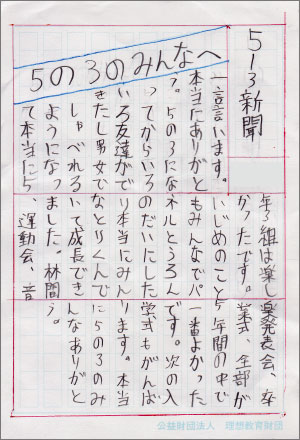 5-3新聞
5の3のみんなへ
一言言います。
本当にありがと
う。5の3にな
ってからいろ
いろ友達がで
きたし男女で
しゃべれる
ようになっ
て本当に5
年3組は楽し
かったです。
いじめのこと
もみんなでパ
ネルとうろん
のだいにした
り本当にみん
なとりくんで
いて成長でき
ました。林間
、運動会、音
楽発表会、卒
業式、全部が
5年間の中で
一番よかった
です。次の入
学式もがんば
ります。本当
に5の3のみ
んなありがと
う。
公益財団法人 理想教育財団